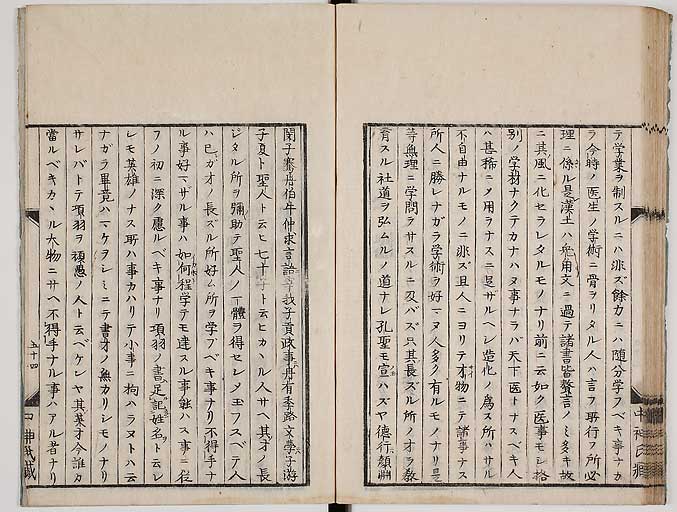 テ学業ヲ制スルニハ非ズ餘力ニハ随分学フベキ事ナカ
ラ今時ノ医生ノ学術ニ骨ヲリタル人ハ言ヲ取行フ所必
理ニ係ル是漢土ハ文ニ過テ諸書皆贅言ノミ多キ故
ニ其風ニ化セラレタルモノナリ前ニ云如ク医事モシ格
別ノ学材ナクテカナハヌ事ナラバ天下医トナスベキ人
ハ甚稀ニメ用ヲナスニ足サルヘシ造化ノ為ス所ハサル
不自由ナルモノニ非ズ且人ニヨリテ才物ニテ諸事ナス
所人ニ勝レナガラ学術ヲ好マヌ人多ク有ルモノナリ是
等無理ニ学問ヲサスルニ及バズ只其長ズル所ノオヲ教
育スル社道ヲ弘ムルノ道ナレ孔聖モ宣ハズヤ徳行顔淵
閔子騫冉伯牛仲弓言語宰我子貢政事冉有季路文学子游
子夏ト聖人ト云ヒ七十子ト云ヒカヽル人サヘ其才ノ長
ジタル所ヲ弥助テ聖人ノ一體ヲ得セシメ玉フスベテ人
ハ己ガオノ長ズル所好ム所ヲ学ブベキ事ナリ不得手ナ
ル事好マザル事ハ如何程学テモ達スル事能ハズ事ニ従
フノ初ニ深ク慮ルベキ事ナリ項羽ノ書足記姓名ト云レ
シモ英雄ノナス所ハ事カハリテ小事ニ拘ハラヌトハ云
ナガラ畢竟ハマケヲシミニテ書才ノ無カリシモノナリ
サレバトテ項羽ヲ頑愚ノ人ト云ベケンヤ其英才今誰カ
當ルベキカヽル大物ニサヘ不得手ナル事ハアル者ナリ
五十四